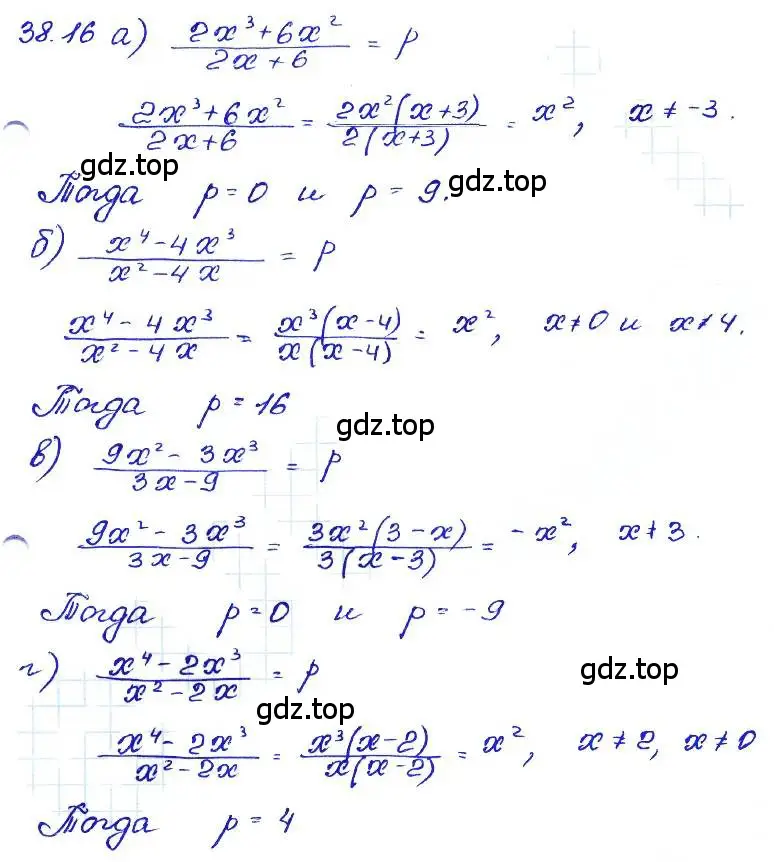 38.16 а) (2x³+6x²)/(2x+6) = p
(2x³+6x²)/(2x+6) = (2x²(x+3))/(2(x+3)) = x², x ≠ -3.
gdz.top
Тогда p=0 и p=9.
gdz.top
б) (x⁴-4x³)/(x²-4x) = p
(x⁴-4x³)/(x²-4x) = (x³(x-4))/(x(x-4)) = x², x≠0 и x≠4.
Тогда p=16
gdz.top
в) (9x²-3x³)/(3x-9) = p
(9x²-3x³)/(3x-9) = (3x²(3-x))/(3(x-3)) = -x², x≠3.
Тогда p=0 и p=-9
г) (x⁴-2x³)/(x²-2x) = p
gdz.top
gdz.top
(x⁴-2x³)/(x²-2x) = (x³(x-2))/(x(x-2)) = x², x≠2, x≠0
Тогда p=4